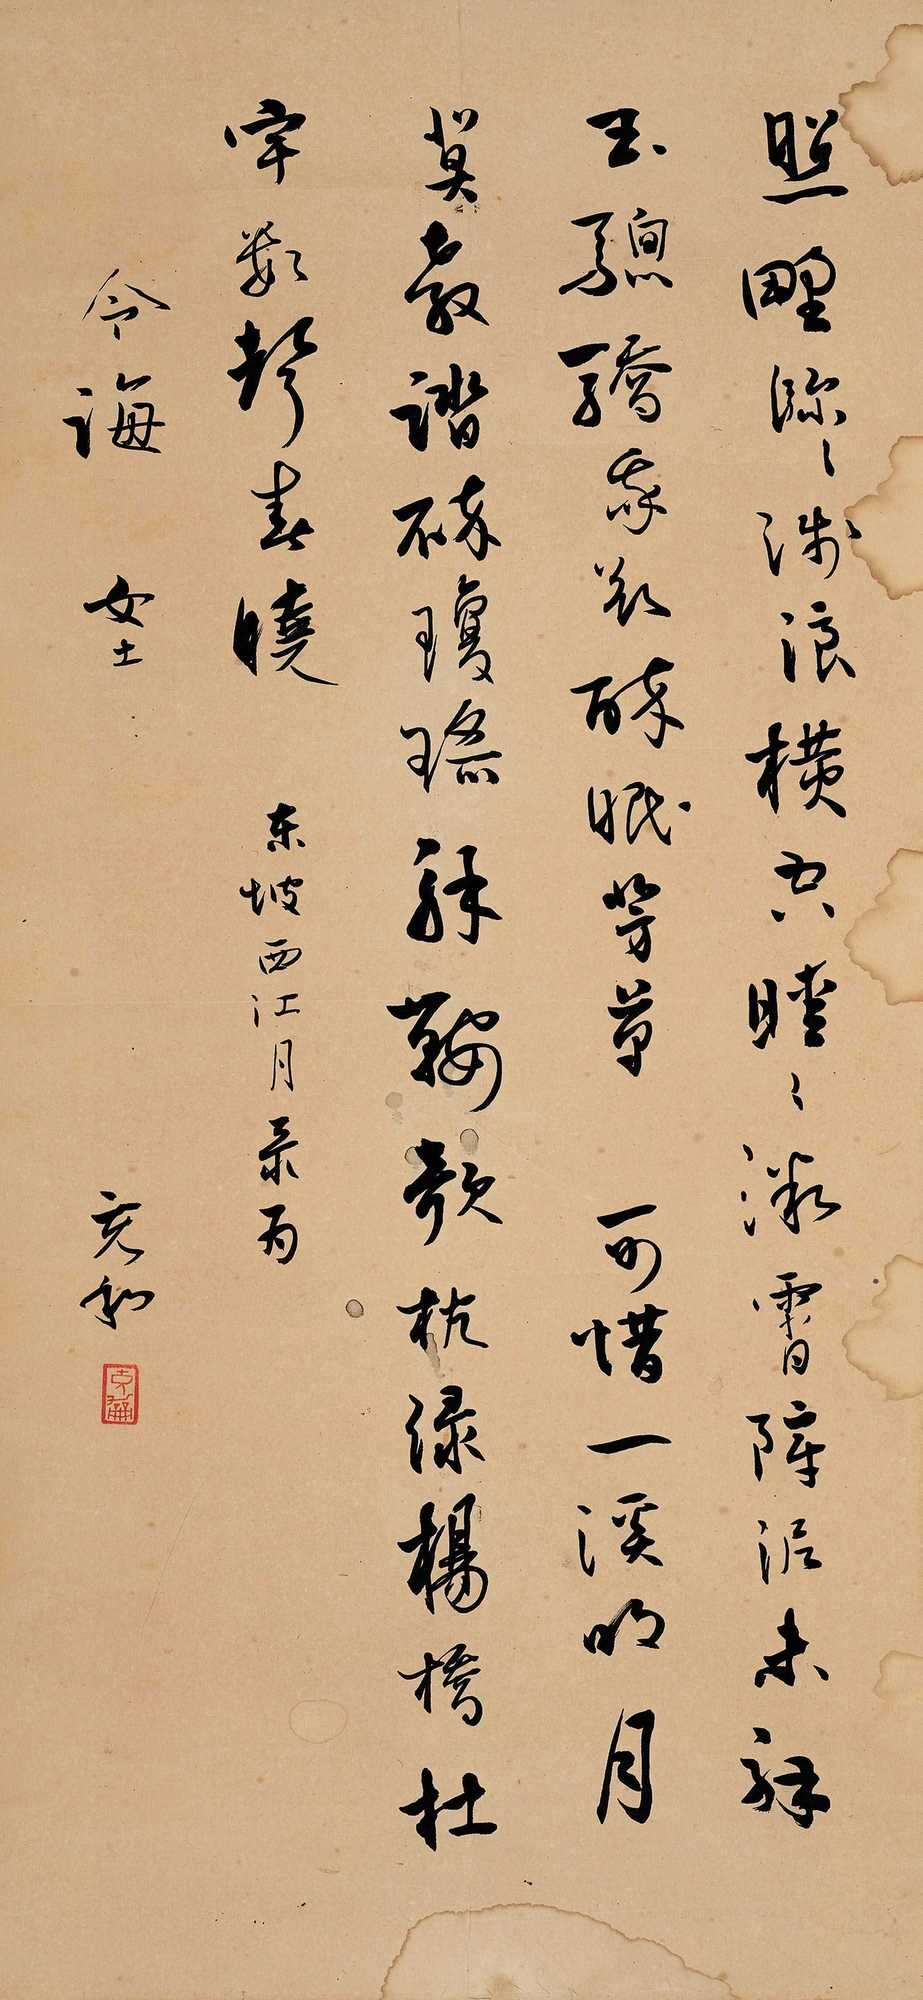 照野瀰〻淺浪橫空曖〻微霄障泥未解
玉驄驕我欲醉眠芳草 可惜一溪明月
莫教踏碎瓊瑤解鞍欹枕綠楊橋杜
宇數聲春曉 東坡西江月录为
令誨 女士 充和